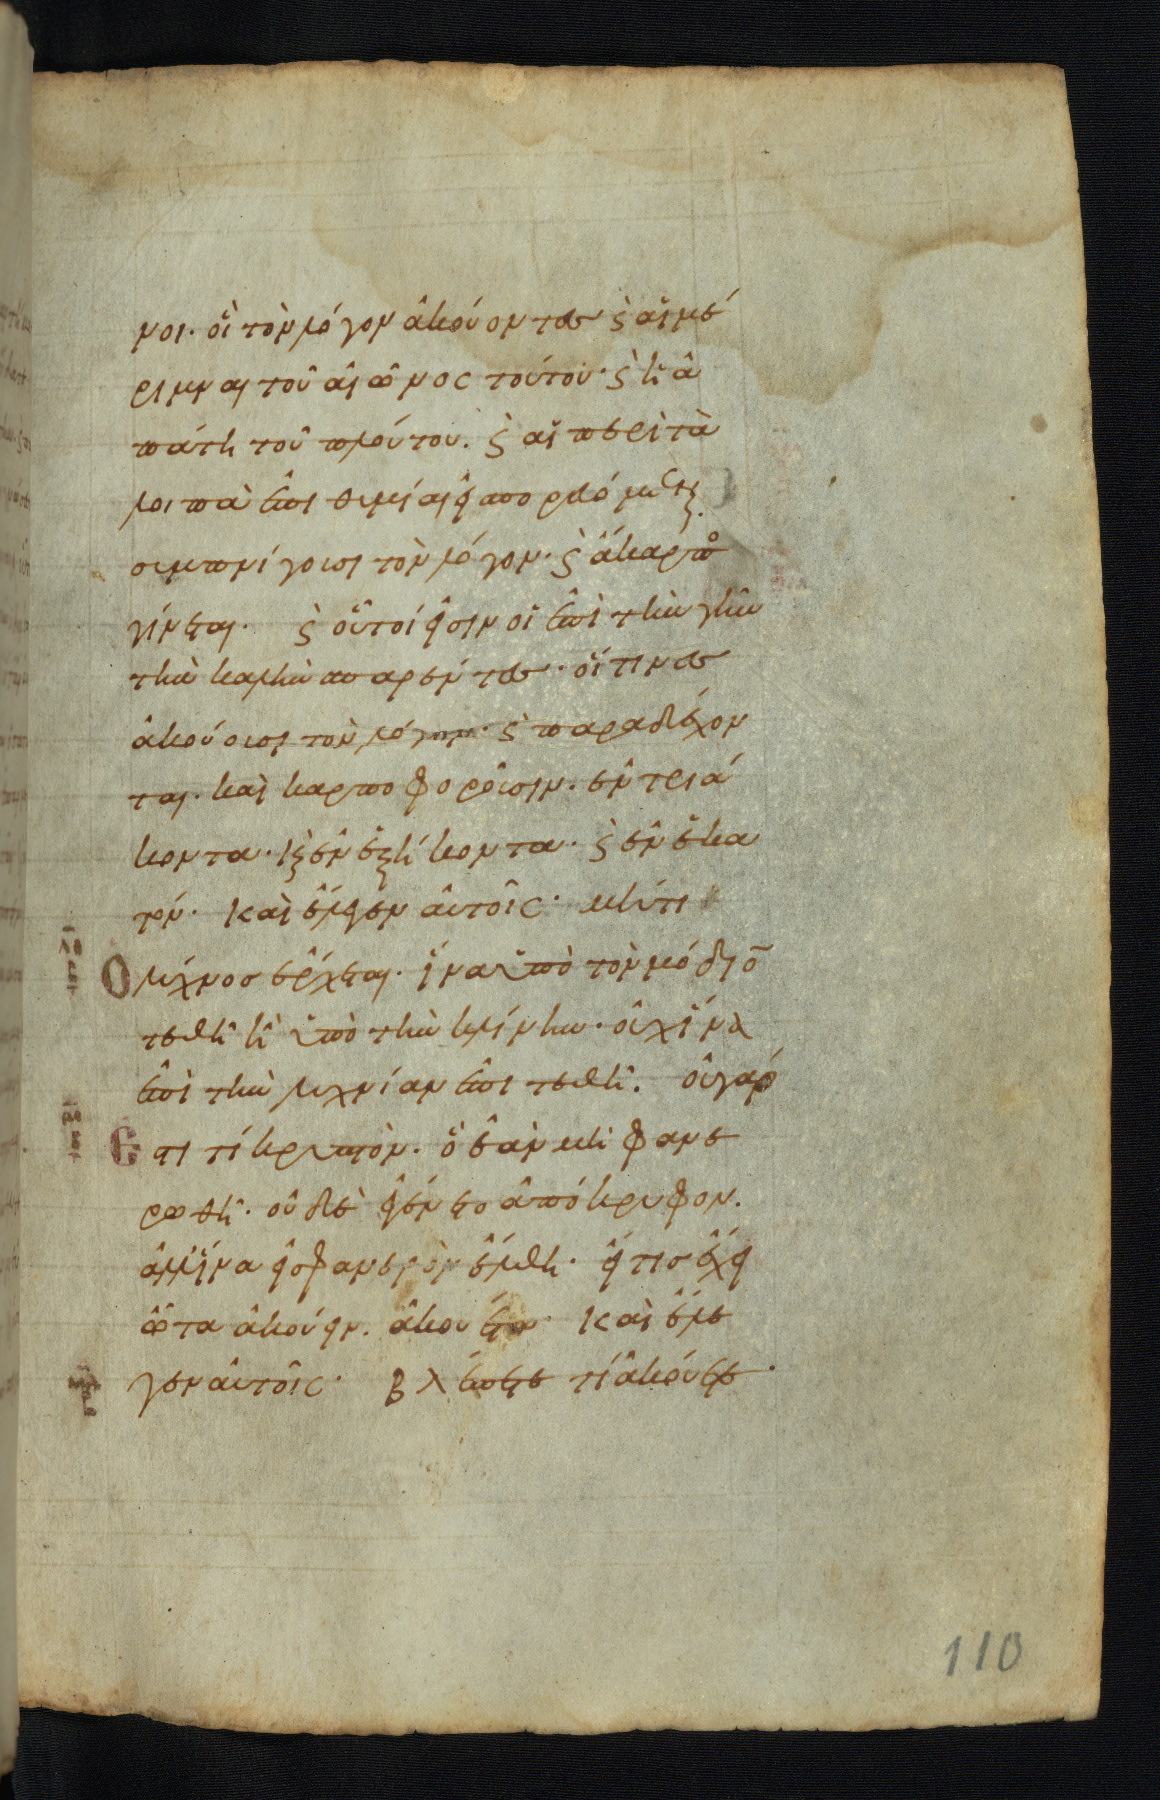 νοι· οἱ τὸν λόγον ἀκούοντες ϛ αἱ μέ
ριμναι τοῦ αἰῶνος τούτου· ϛ ἡ ἀ
πάτη τοῦ πλούτου. ϛ αἱ περὶ τὰ
λοιπὰ ἐπιθυμίαι εἰσπορευόμεναι
συμπνίγουσι τὸν λόγον· ϛ ἄκαρπος
γίνεται. ϛ οὗτοί εἰσιν οἱ ἐπὶ τὴν γῆν
τὴν καλὴν σπαρέντες· οἵτινες
ἀκούουσι τὸν λόγον· ϛ παραδέχον
ται. καὶ καρποφοροῦσιν. ἓν τριά
κοντα· κ ἓν ἑξήκοντα· ϛ ἓν ἑκα
τόν. Καὶ ἔλεγεν αὐτοῖς· μήτι
Ὁ λύχνος ἔρχεται. ἵνα ὑπὸ τὸν μόδιον
τεθῆ ἢ ὑπὸ τὴν κλίνην. οὐχ ἵνα
ἐπὶ τὴν λυχνίαν ἐπιτεθῆ. οὐ γάρ
Ε στι τί κρυπτὸν. ὃ ἐὰν μὴ φανε
ρωθῆ. οὐδὲ ἐγένετο ἀπόκρυφον.
ἀλλ' ἵνα εἰς φανερὸν ἔλθη. εἴ τις ἔχει
ὦτα ἀκούειν. ἀκουέτω· Καὶ ἔλε
γεν αὐτοῖς· βλέπετε τί ἀκούετε·
110